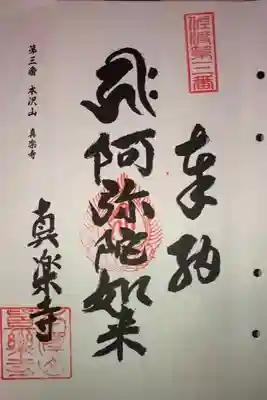 佐渡第三番
奉納
阿弥陀如来
第三番 木沢山 真楽寺
真楽寺